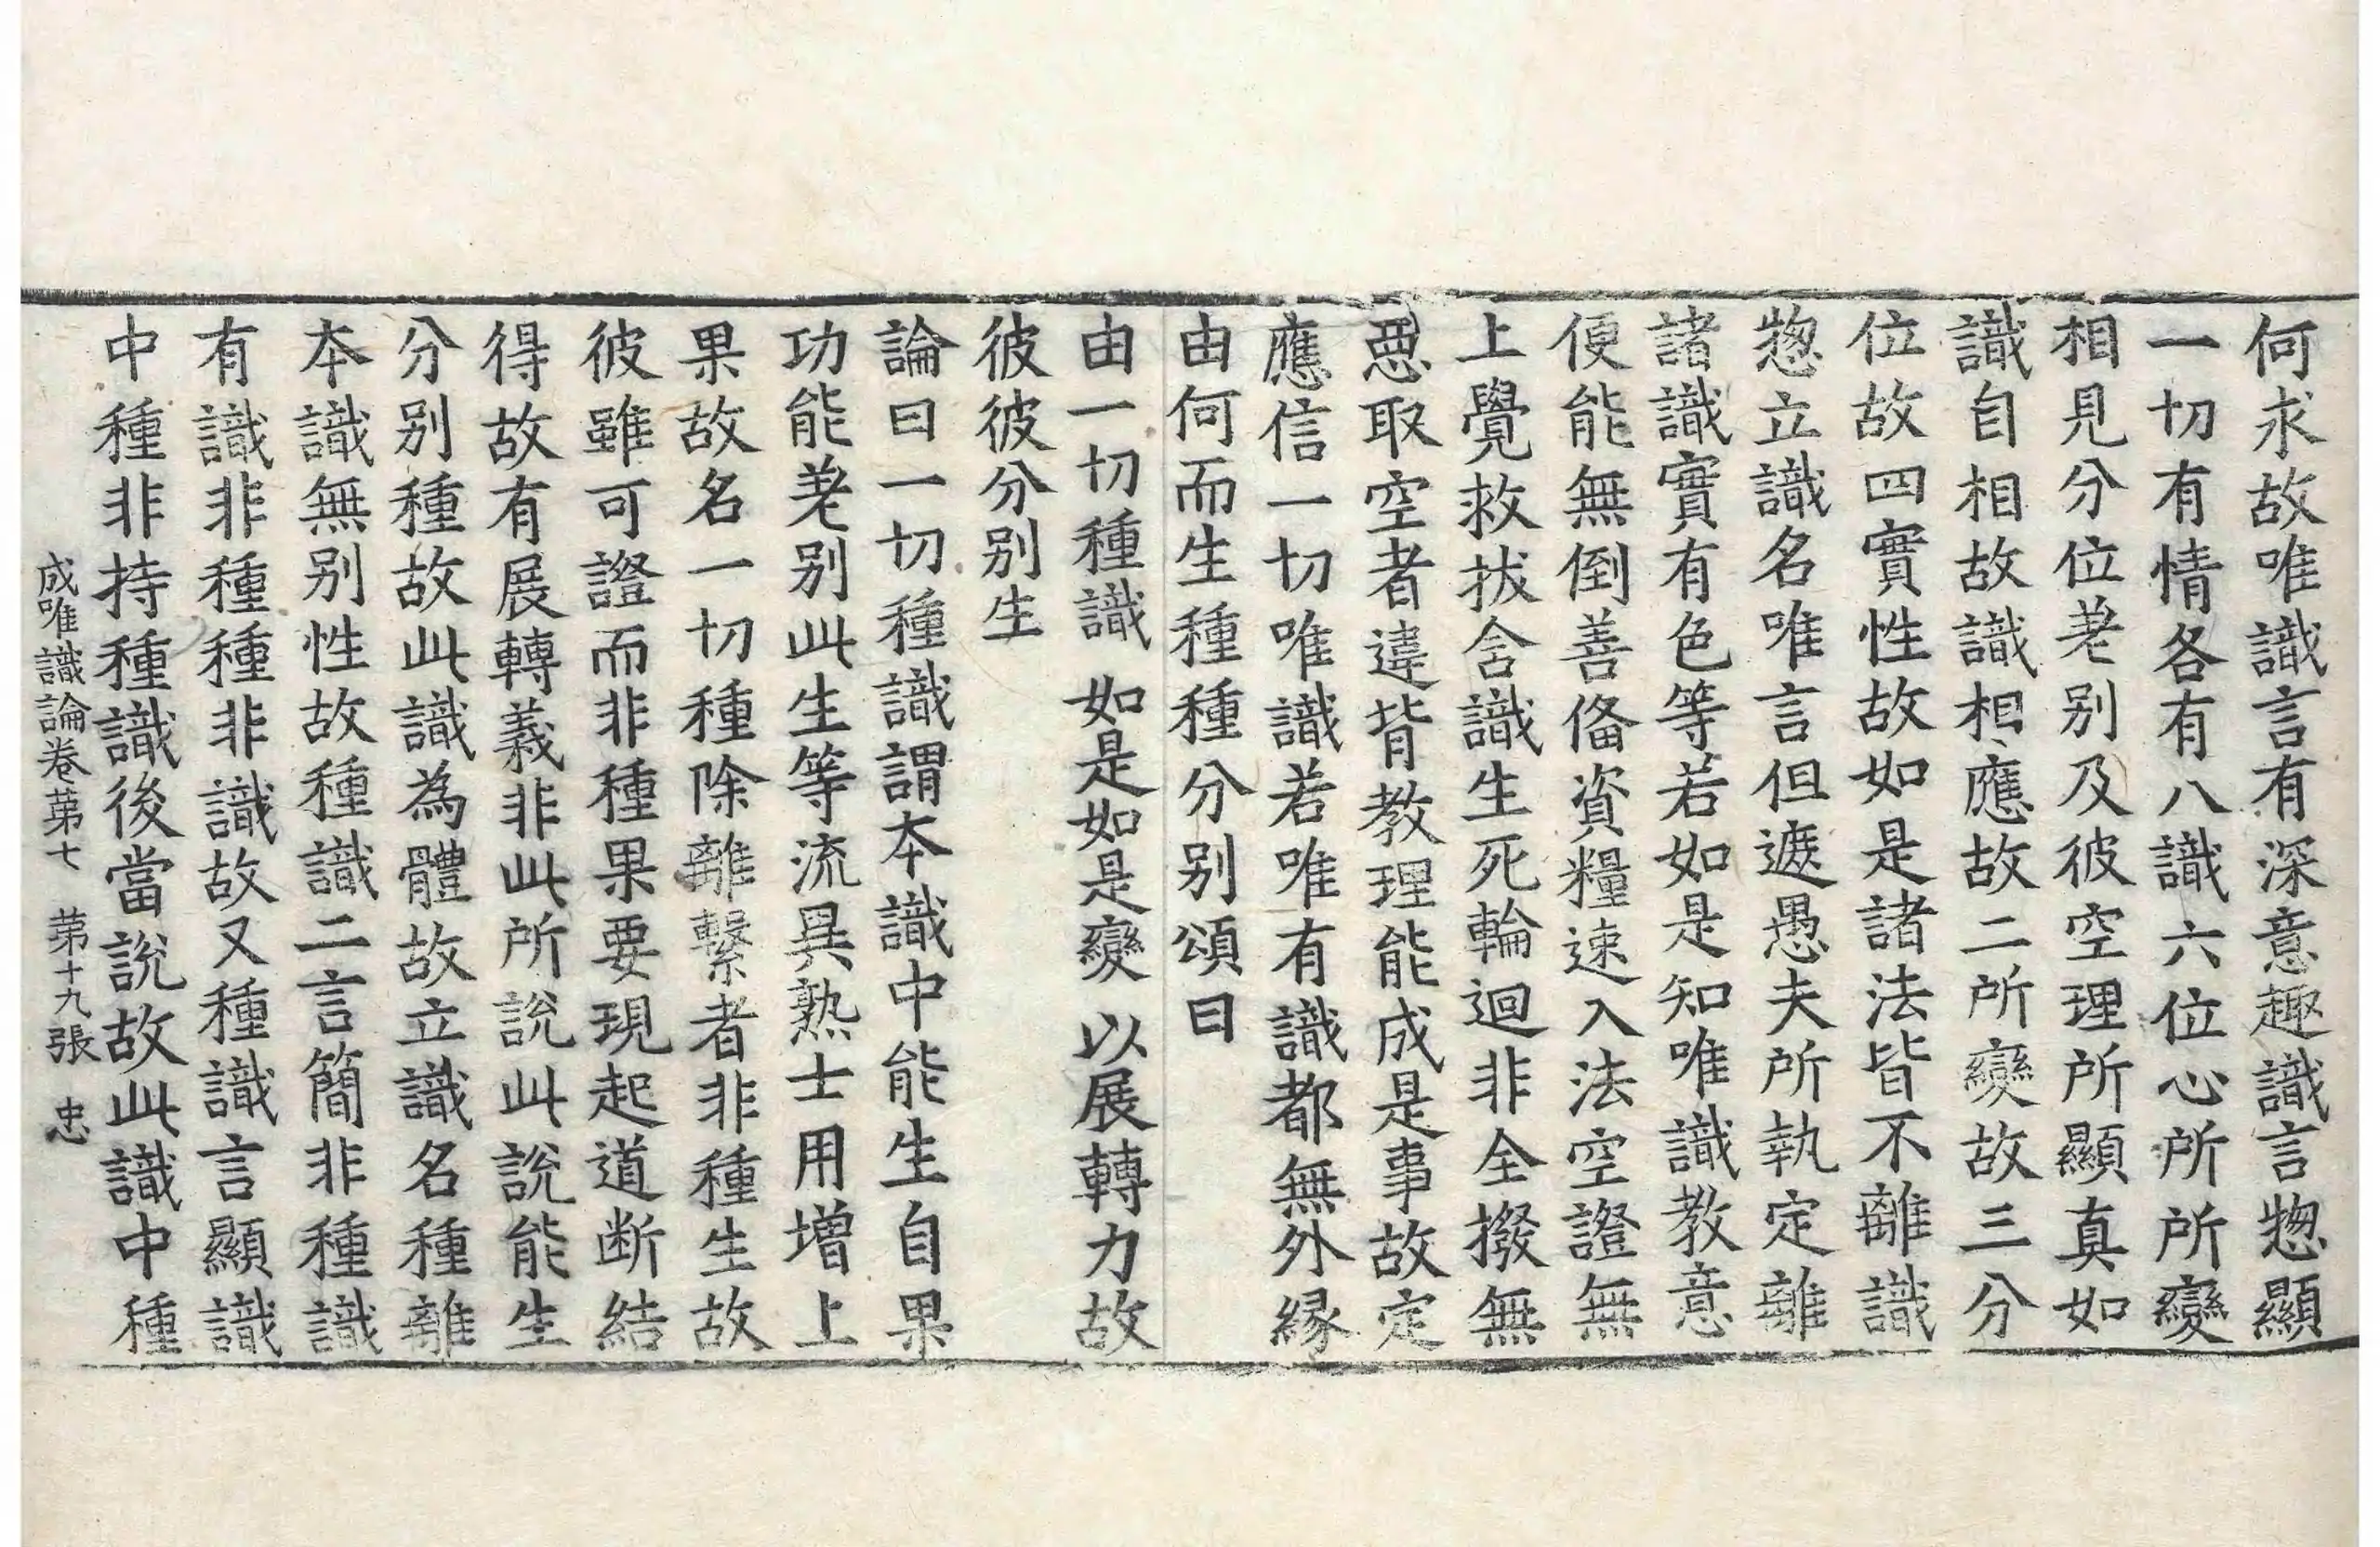 何求故唯識言有深意趣識言惣顯
一切有情各有八識六位心所所變
相見分位差别及彼空理所顯真如
識自相故識相應故二所變故三分
位故四實性故如是諸法皆不離識
惣立識名唯言但遮愚夫所執定離
諸識實有色等若如是知唯識教意
便能無倒善俻資糧速入法空證無
上覺救拔含識生死輪迴非全撥無
惡取空者違背教理能成是事故定
應信一切唯識若唯有識都無外縁
由何而生種種分别頌曰
由一切種識 如是如是變 以展轉力故
彼彼分别生
論曰一切種識謂本識中能生自果
功能差别此生等流異熟士用增上
果故名一切種除離繫者非種生故
彼雖可證而非種果要現起道断結
得故有展轉義非此所說此說能生
分别種故此識為體故立識名種離
本識無别性故種識二言簡非種識
有識非種種非識故又種識言顯識
中種非持種識後當說故此識中種
成唯識論卷苐七 苐十九張 忠